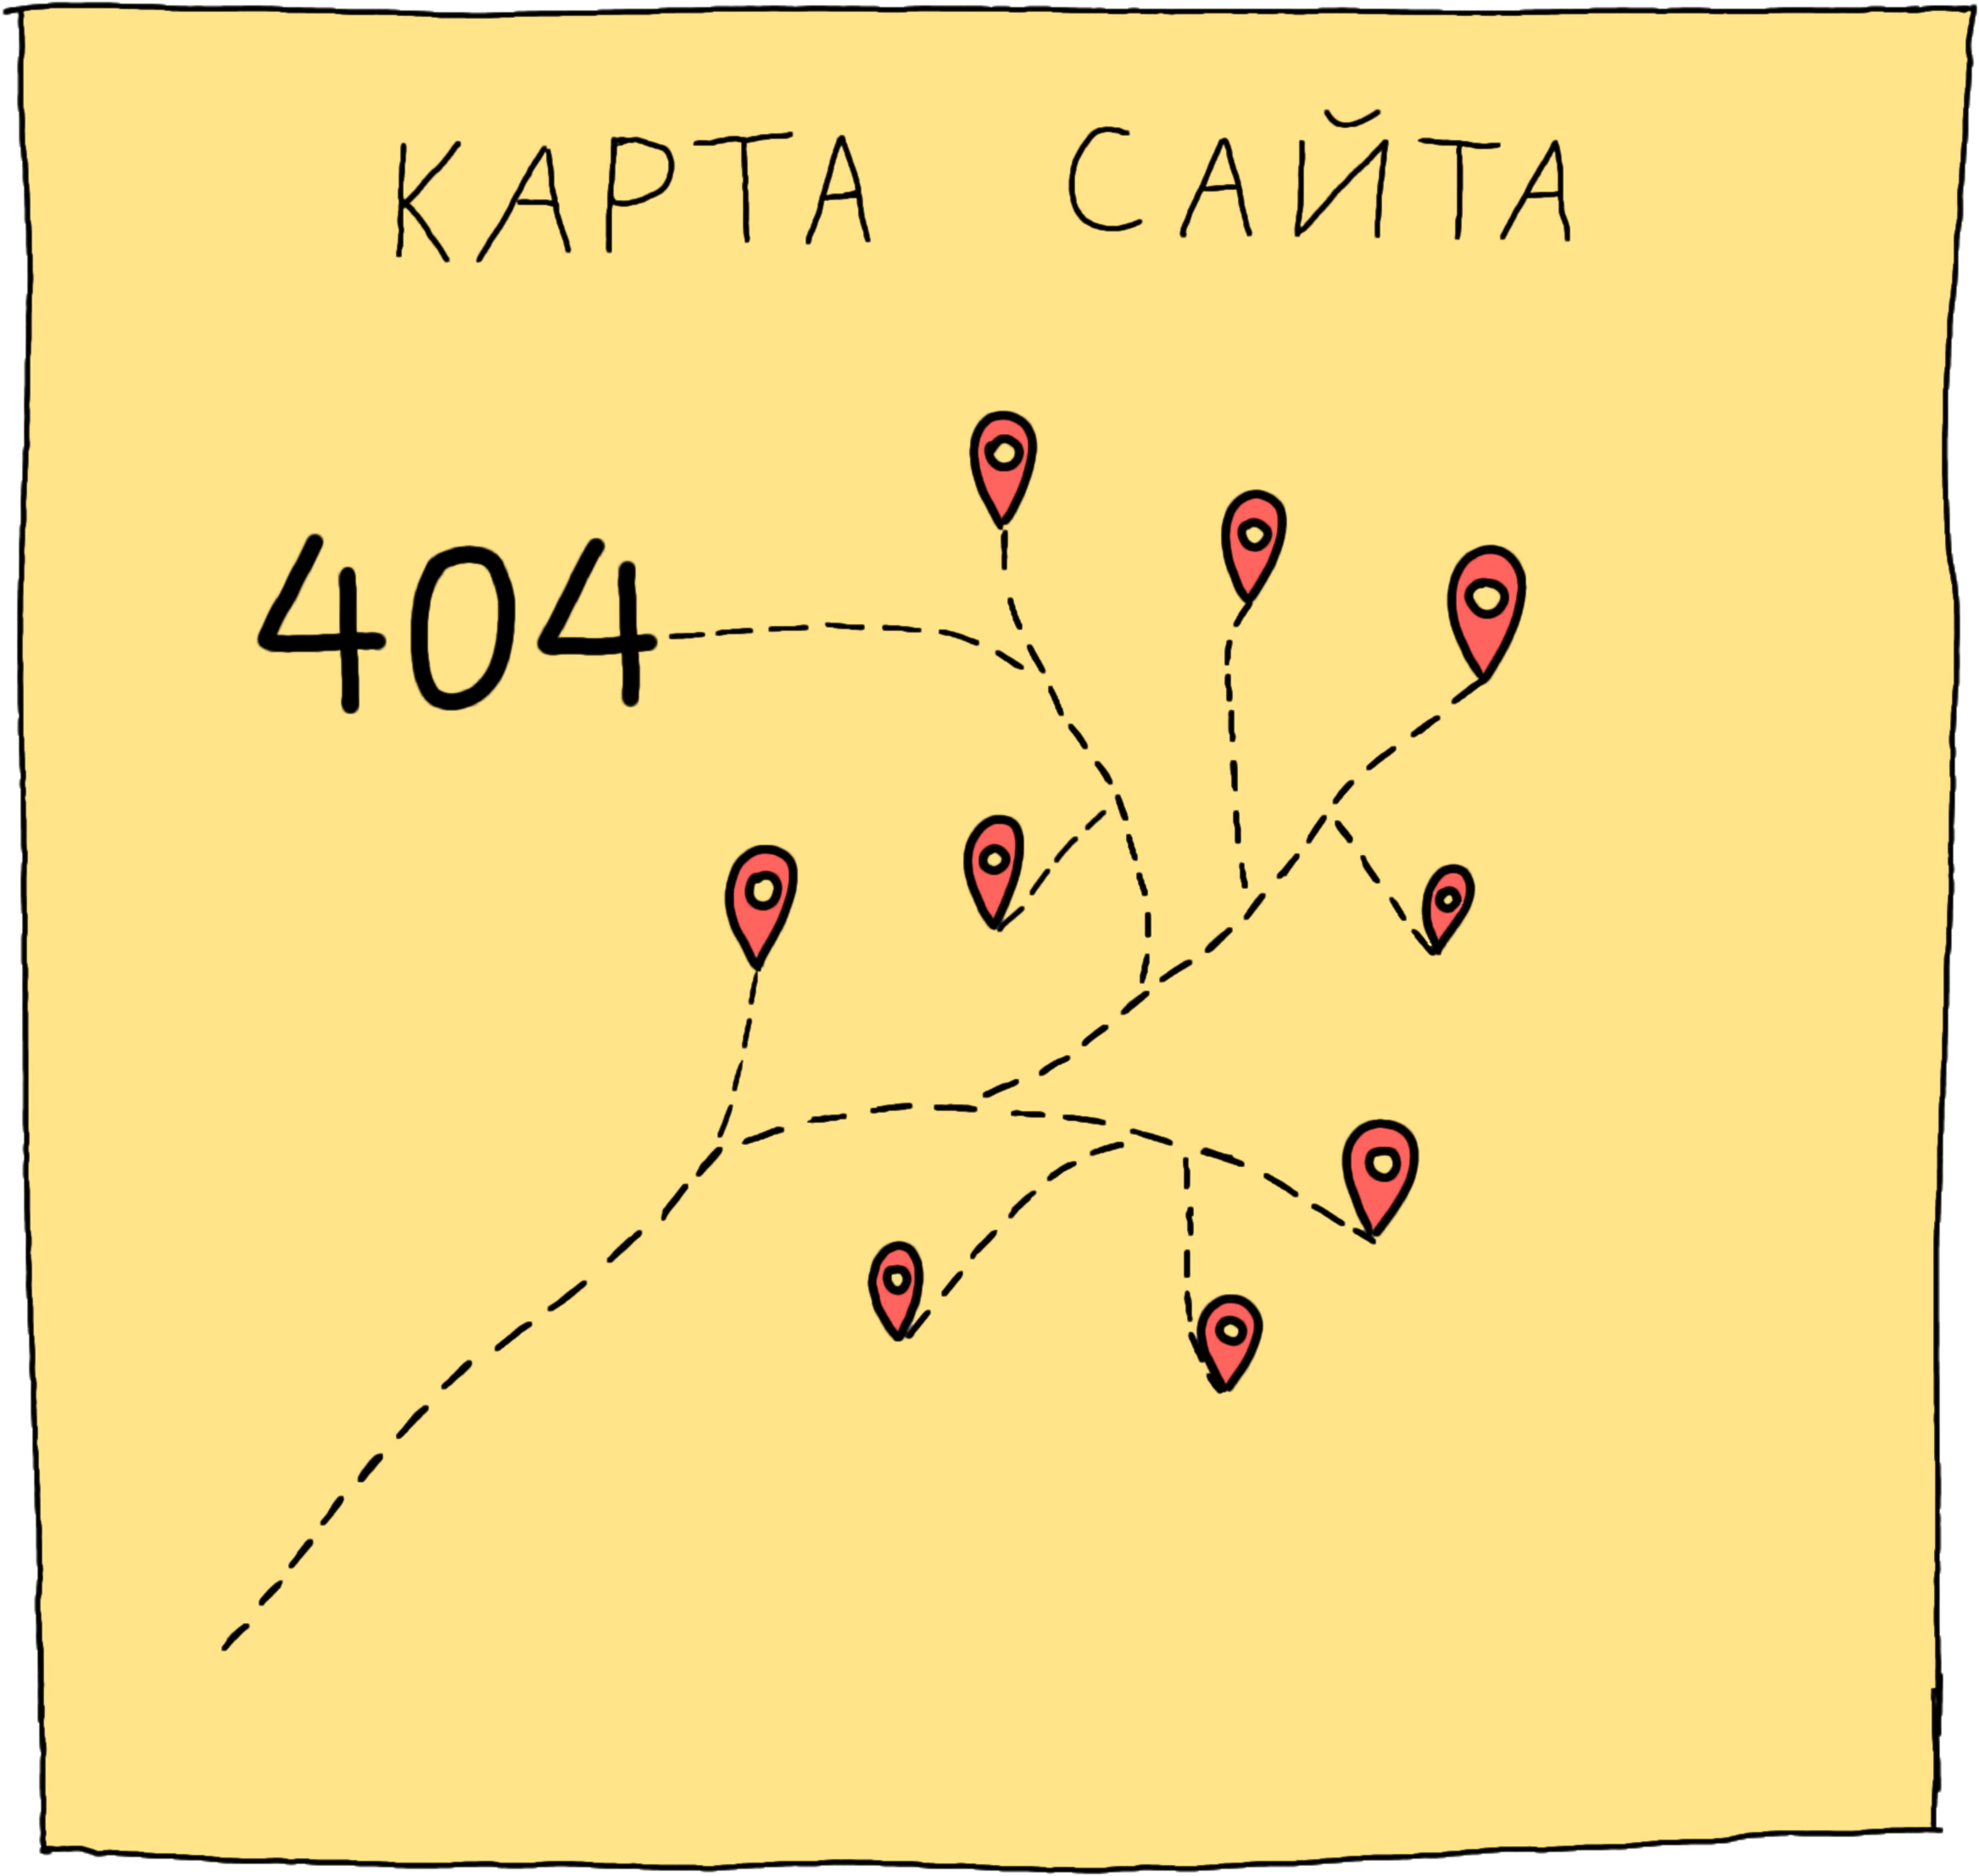 КАРТА САЙТА
404